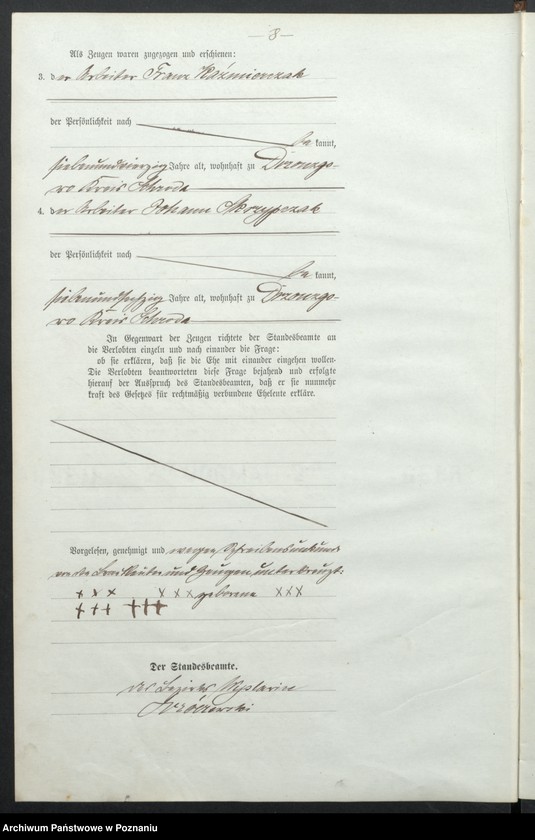 — 8 —
Als Zeugen waren zugezogen und erschienen:
3. der Arbeiter Franz Kaźmierczak
der Persönlichkeit nach
be kannt,
siebenundvierzig Jahre alt, wohnhaft zu
Kreis Schroda
4. der Arbeiter Johann Skrzypczak
der Persönlichkeit nach
be kannt,
siebenundsechzig Jahre alt, wohnhaft zu
Kreis Schroda
In Gegenwart der Zeugen richtete der Standesbeamte an
die Verlobten einzeln und nach einander die Frage:
ob sie erklären, daß sie die Ehe mit einander eingehen wollen.
Die Verlobten beantworteten diese Frage bejahend und erfolgte
hierauf der Ausspruch des Standesbeamten, daß er sie nunmehr
kraft des Gesetzes für rechtmäßig verbundene Eheleute erkläre.
Vorgelesen, genehmigt und wegen Schreibensunkunde
der Brautleute und Zeugen unterkreuzt:
+ × × × × × geborene × × ×
+ + + + + +
Der Standesbeamte.
des Bezirks
Archiwum Państwowe w Poznaniu